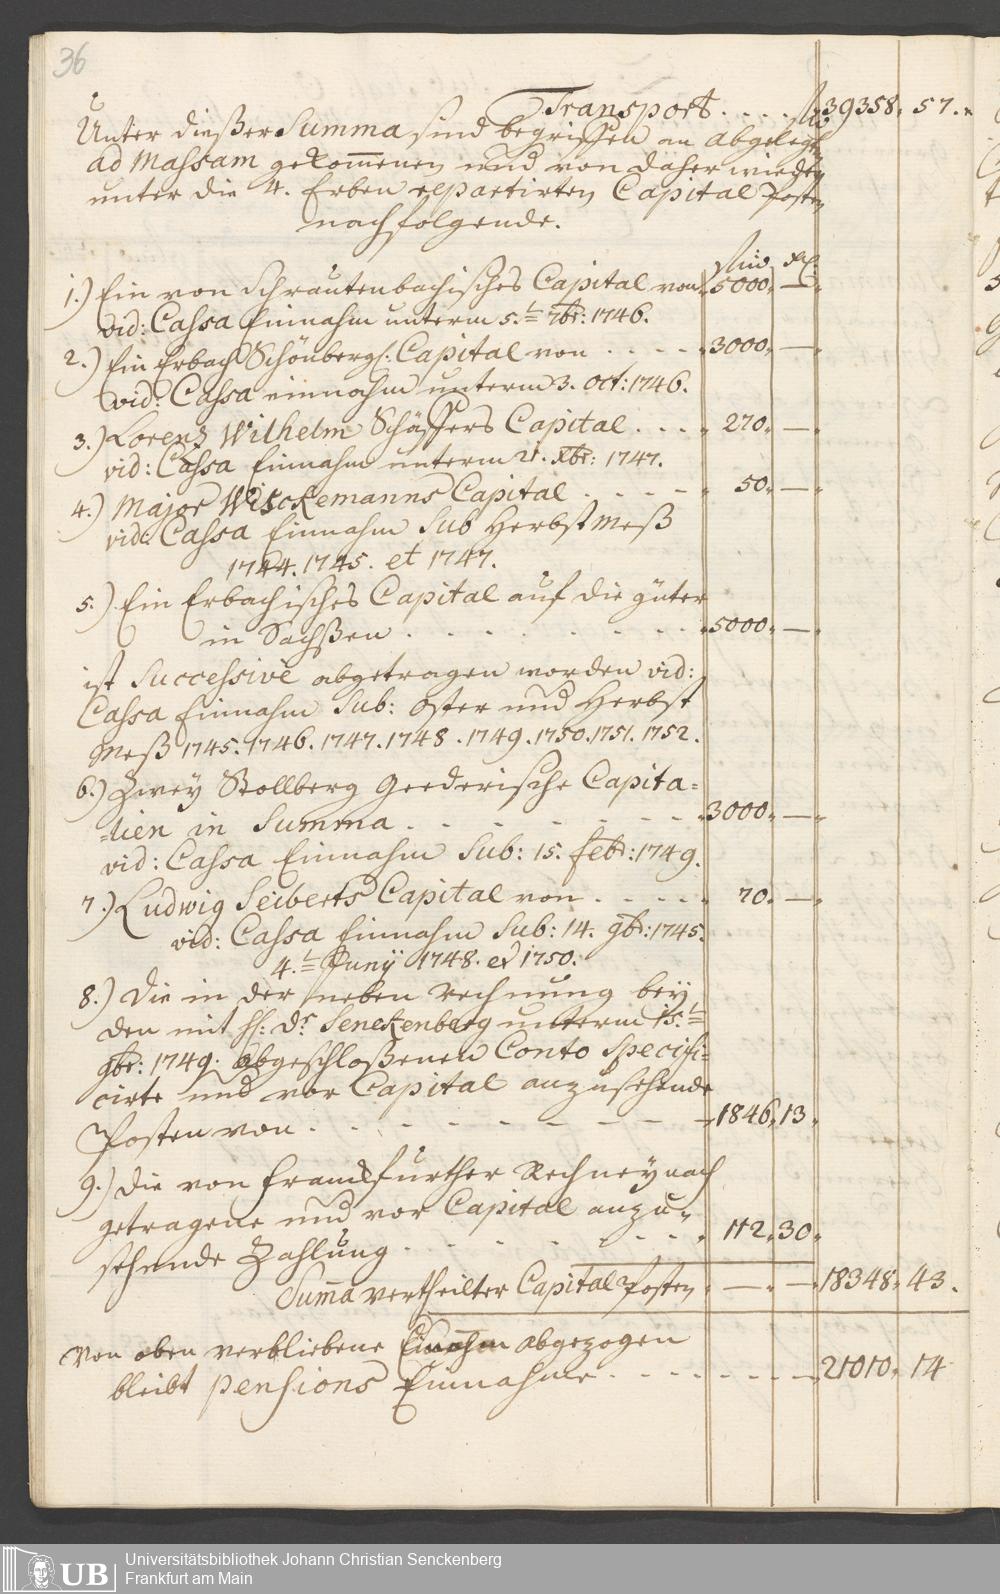 36
Transport . . . . 39358. 57.
Unter dießer Summa sind begriffen an abgelegt
ad Massam gekom̅enen und von daher wieder
unter die 4. Erben repartirten Capital Posten
nachfolgende.
1.) Ein von Schrautenbachisches Capital von 5000. —
vid: Cassa Einnahm unterm 5.t 7br: 1746.
2.) Ein Erbach Schönbergl. Capital von . . . . 3000. —
vid: Cassa einnahm unterm 3. Oct: 1746.
3.) Lorenz Wilhelm Schäffers Capital . . . 270. —
vid: Cassa Einnahm unterm 21. Xbr: 1747.
4.) Major Wisckemanns Capital . . . . 50. —
vid: Cassa Einnahm Sub Herbst Meß
1744. 1745. et 1747.
5.) Ein Erbachisches Capital auf die güter
in Sachßen . . . . . . . . 5000. —
ist Successive abgetragen worden vid:
Cassa Einnahm Sub: Oster und Herbst
Meß 1745. 1746. 1747. 1748. 1749. 1750. 1751. 1752.
6.) Zwey Stollberg Geederische Capita=
=lien in Summa . . . . . . . 3000. —
vid: Cassa Einnahm Sub: 15. febr: 1749.
7.) Ludwig Seiberts Capital von . . . . 70. —
vid: Cassa Einnahm Sub: 14. 9br: 1745.
4.t Junÿ 1748. et 1750.
8.) Die in der neben Rechnung beÿ
den mit H: Dr. Senckenberg unterm 15.t
9br: 1749. abgeschloßenen Conto Specifi=
cirte und vor Capital anzusehende
Posten von . . . . . . . . 1846. 13.
9.) Die von Franckfurther Rechney nach
getragene und vor Capital anzu=
sehende Zahlung . . . . . . 112. 30.
Sum̅a vertheilter Capital Posten . — . — 18348. 43.
Von oben verbliebene Einnahm abgezogen
bleibt pensions Einnahme . . . . . . . 21010. 14
Universitätsbibliothek Johann Christian Senckenberg
UB Frankfurt am Main